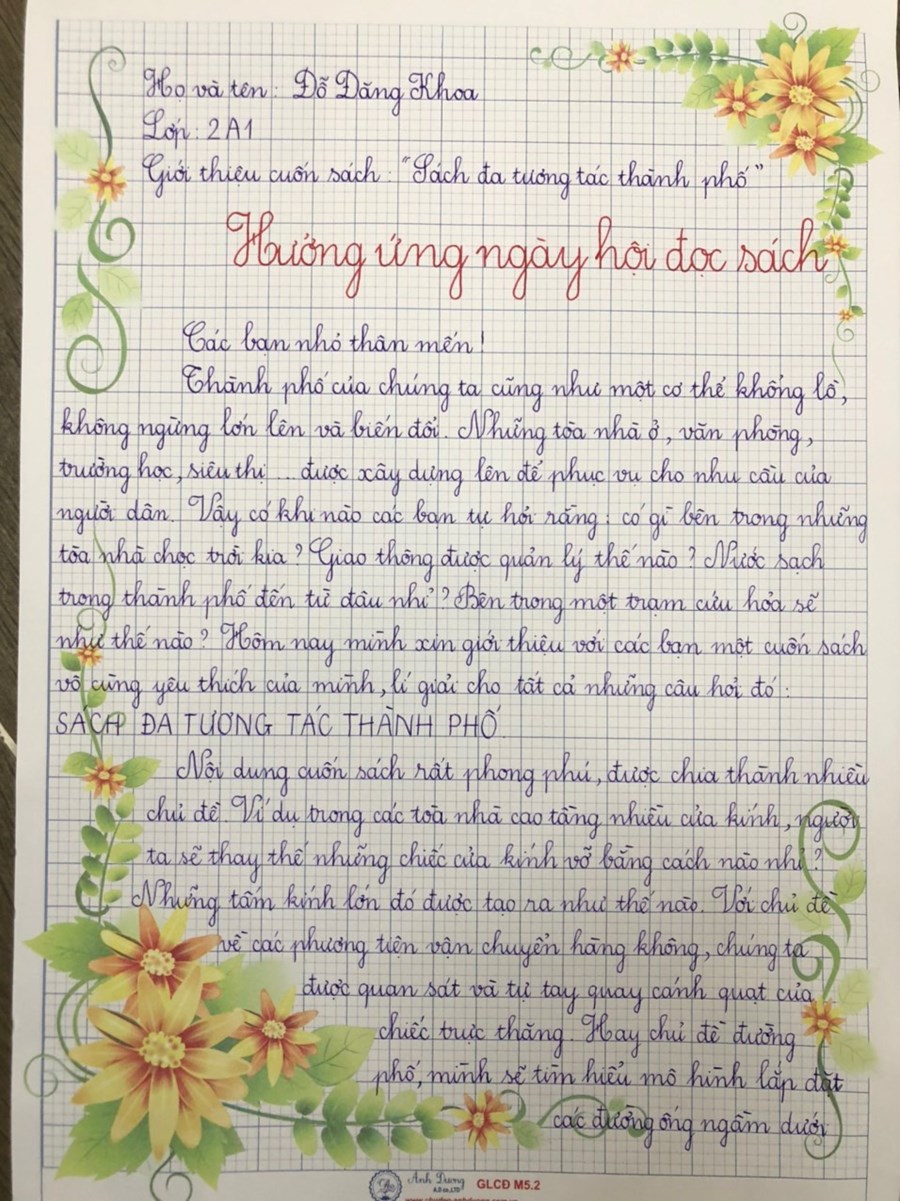 Họ và tên: Đỗ Đăng Khoa
Lớp: 2A1
Giới thiệu cuốn sách: "Sách đa tương tác thành phố"
Hưởng ứng ngày hội đọc sách
Các bạn nhỏ thân mến!
Thành phố của chúng ta cũng như một cơ thể khổng lồ,
không ngừng lớn lên và biến đổi. Những tòa nhà ở, văn phòng,
trường học, siêu thị ... được xây dựng lên để phục vụ cho nhu cầu của
người dân. Vậy có khi nào các bạn tự hỏi rằng: có gì bên trong những
tòa nhà chọc trời kia? Giao thông được quản lý thế nào? Nước sạch
trong thành phố đến từ đâu nhỉ? Bên trong một trạm cứu hỏa sẽ
như thế nào? Hôm nay mình xin giới thiệu với các bạn một cuốn sách
vô cùng yêu thích của mình, lí giải cho tất cả những câu hỏi đó:
SÁCH ĐA TƯƠNG TÁC THÀNH PHỐ.
Nội dung cuốn sách rất phong phú, được chia thành nhiều
chủ đề. Ví dụ trong các toà nhà cao tầng nhiều cửa kính, người
ta sẽ thay thế những chiếc cửa kính vỡ bằng cách nào nhỉ?
Những tấm kính lớn đó được tạo ra như thế nào. Với chủ đề
về các phương tiện vận chuyển hàng không, chúng ta
được quan sát và tự tay quay cánh quạt của
chiếc trực thăng. Hay chủ đề đường
phố, mình sẽ tìm hiểu mô hình lắp đặt
các đường ống ngầm dưới
Anh Dương
GLCĐ M5.2